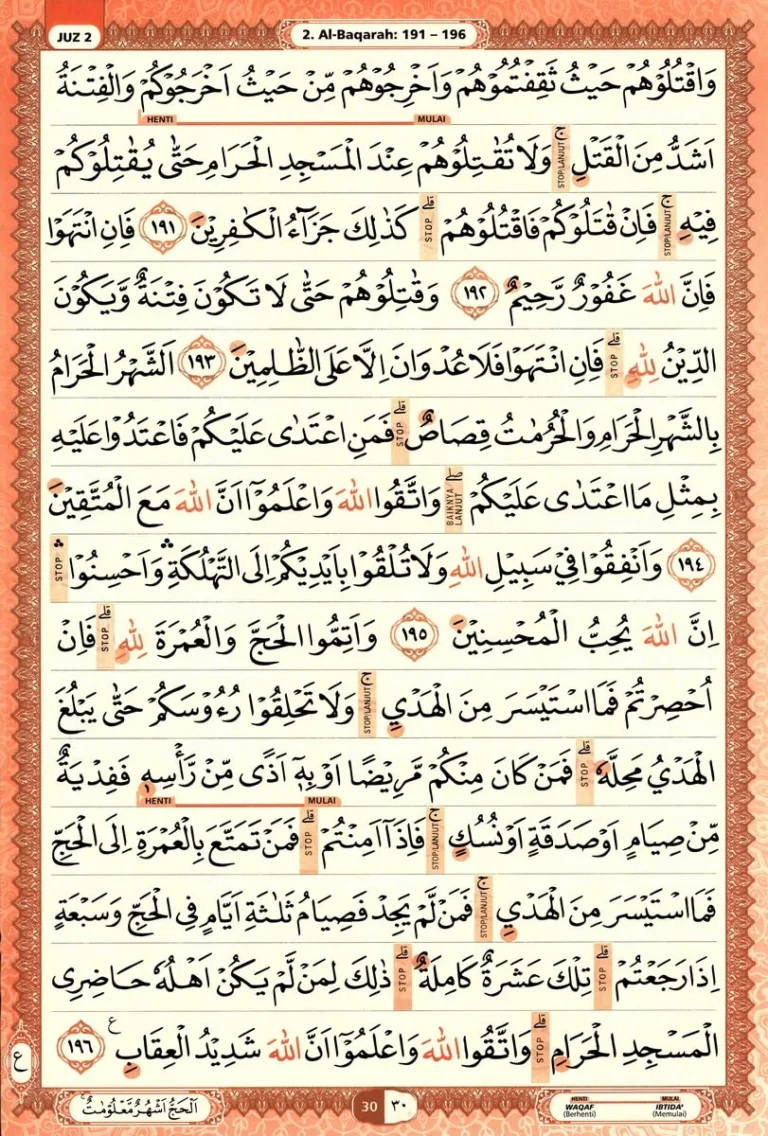 JUZ 2
2. Al-Baqarah: 191 – 196
وَاقْتُلُوْهُمْ حَيْثُ ثَقِفْتُمُوْهُمْ وَاَخْرِجُوْهُمْ مِّنْ حَيْثُ اَخْرَجُوْكُمْ وَالْفِتْنَةُ
MULAI HENTI
اَشَدُّ مِنَ الْقَتْلِ ۚ STOP/LANJUT وَلَا تُقٰتِلُوْهُمْ عِنْدَ الْمَسْجِدِ الْحَرَامِ حَتّٰى يُقٰتِلُوْكُمْ
فِيْهِ ۚ STOP/LANJUT فَاِنْ قٰتَلُوْكُمْ فَاقْتُلُوْهُمْ ۗ STOP كَذٰلِكَ جَزَاۤءُ الْكٰفِرِيْنَ ١٩١ فَاِنِ انْتَهَوْا
فَاِنَّ اللّٰهَ غَفُوْرٌ رَّحِيْمٌ ١٩٢ وَقٰتِلُوْهُمْ حَتّٰى لَا تَكُوْنَ فِتْنَةٌ وَّيَكُوْنَ
الدِّيْنُ لِلّٰهِ ۗ STOP فَاِنِ انْتَهَوْا فَلَا عُدْوَانَ اِلَّا عَلَى الظّٰلِمِيْنَ ١٩٣ اَلشَّهْرُ الْحَرَامُ
بِالشَّهْرِ الْحَرَامِ وَالْحُرُمٰتُ قِصَاصٌ ۗ STOP فَمَنِ اعْتَدٰى عَلَيْكُمْ فَاعْتَدُوْا عَلَيْهِ
بِمِثْلِ مَا اعْتَدٰى عَلَيْكُمْ ۖ BAIKNYA LANJUT وَاتَّقُوا اللّٰهَ وَاعْلَمُوْٓا اَنَّ اللّٰهَ مَعَ الْمُتَّقِيْنَ
١٩٤ وَاَنْفِقُوْا فِيْ سَبِيْلِ اللّٰهِ وَلَا تُلْقُوْا بِاَيْدِيْكُمْ اِلَى التَّهْلُكَةِ ۛ وَاَحْسِنُوْا ۛ STOP
اِنَّ اللّٰهَ يُحِبُّ الْمُحْسِنِيْنَ ١٩٥ وَاَتِمُّوا الْحَجَّ وَالْعُمْرَةَ لِلّٰهِ ۗ STOP فَاِنْ
اُحْصِرْتُمْ فَمَا اسْتَيْسَرَ مِنَ الْهَدْيِ ۚ STOP/LANJUT وَلَا تَحْلِقُوْا رُءُوْسَكُمْ حَتّٰى يَبْلُغَ
الْهَدْيُ مَحِلَّهٗ ۗ STOP فَمَنْ كَانَ مِنْكُمْ مَّرِيْضًا اَوْ بِهٖٓ اَذًى مِّنْ رَّأْسِهٖ فَفِدْيَةٌ
MULAI HENTI
مِّنْ صِيَامٍ اَوْ صَدَقَةٍ اَوْ نُسُكٍ ۚ STOP/LANJUT فَاِذَآ اَمِنْتُمْ ۗ STOP فَمَنْ تَمَتَّعَ بِالْعُمْرَةِ اِلَى الْحَجِّ
فَمَا اسْتَيْسَرَ مِنَ الْهَدْيِ ۚ STOP/LANJUT فَمَنْ لَّمْ يَجِدْ فَصِيَامُ ثَلٰثَةِ اَيَّامٍ فِى الْحَجِّ وَسَبْعَةٍ
اِذَا رَجَعْتُمْ ۗ STOP تِلْكَ عَشَرَةٌ كَامِلَةٌ ۗ STOP ذٰلِكَ لِمَنْ لَّمْ يَكُنْ اَهْلُهٗ حَاضِرِى
الْمَسْجِدِ الْحَرَامِ ۗ STOP وَاتَّقُوا اللّٰهَ وَاعْلَمُوْٓا اَنَّ اللّٰهَ شَدِيْدُ الْعِقَابِ ع ١٩٦
ع
اَلْحَجُّ اَشْهُرٌ مَّعْلُوْمٰتٌ ۚ
30 ٣٠
HENTI MULAI
WAQAF IBTIDA'
(Berhenti) (Memulai)